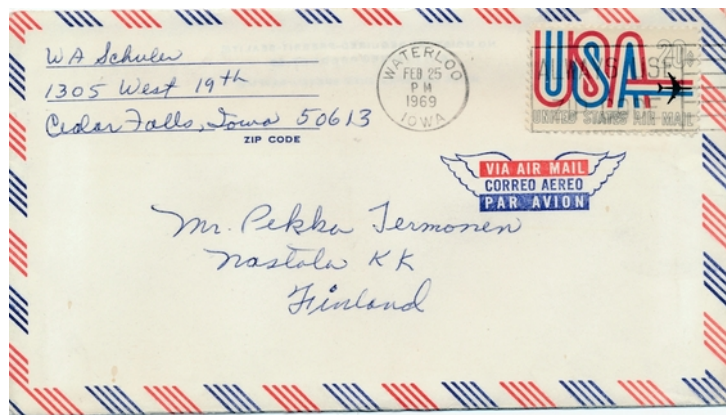 W A Schuler
1305 West 19th
Cedar Falls, Iowa 50613
ZIP CODE
WATERLOO
FEB 25
PM
1969
IOWA
USA 20¢
ALWAYS USE
UNITED STATES AIR MAIL
VIA AIR MAIL
CORREO AEREO
PAR AVION
Mr. Pekka Termonen
Nastola KK
Finland